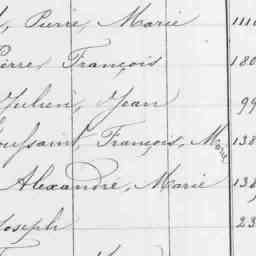 , Pierre, Marie 111
Pierre, François 180
Julien, Jean 99
Toussaint, François, Marie 138
Alexandre, Marie 138
Joseph 23